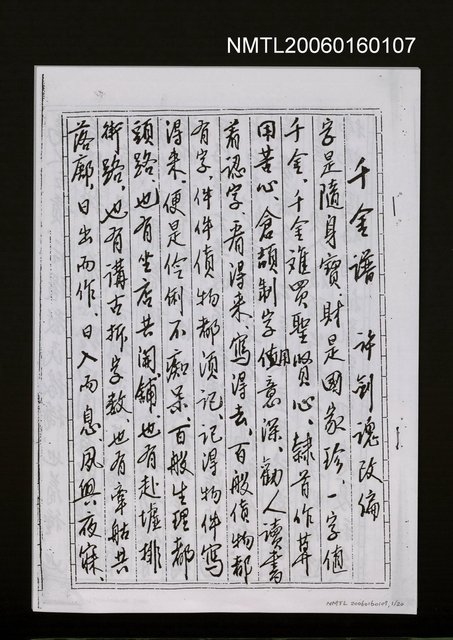 NMTL20060160107
千金譜 許劍魂改編
字是隨身寶、財是國家珍、一字值
千金、千金難買聖賢心、隸首作算
用苦心、倉頡制字用意深、勸人讀書
着認字、看得来、寫得去、百般貨物都
有字、件件貨物都須記、記得物件寫
得来、便是伶俐不痴呆、百般生理都
頭路、也有坐店共開舖、也有赴墟排
街路、也有講古拆字數、也有牽船共
落廊、日出而作、日入而息、夙興夜寐、
NMTL 20060160107, 1/20